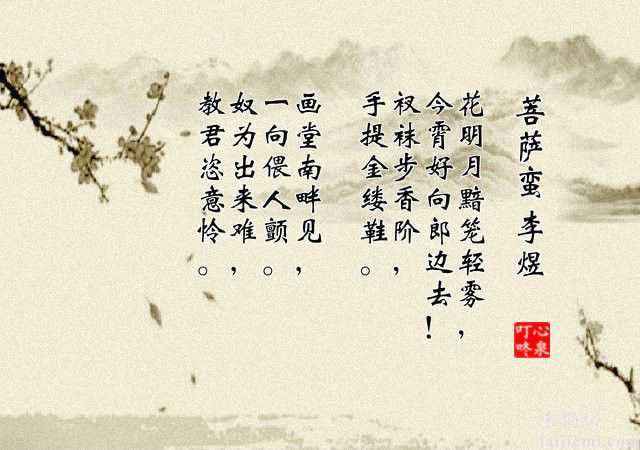 菩萨蛮 李煜
花明月黯笼轻雾，
今霄好向郎边去！
衩袜步香阶，
手提金缕鞋。
画堂南畔见，
一向偎人颤。
奴为出来难，
教君恣意怜。
心泉
叮咚